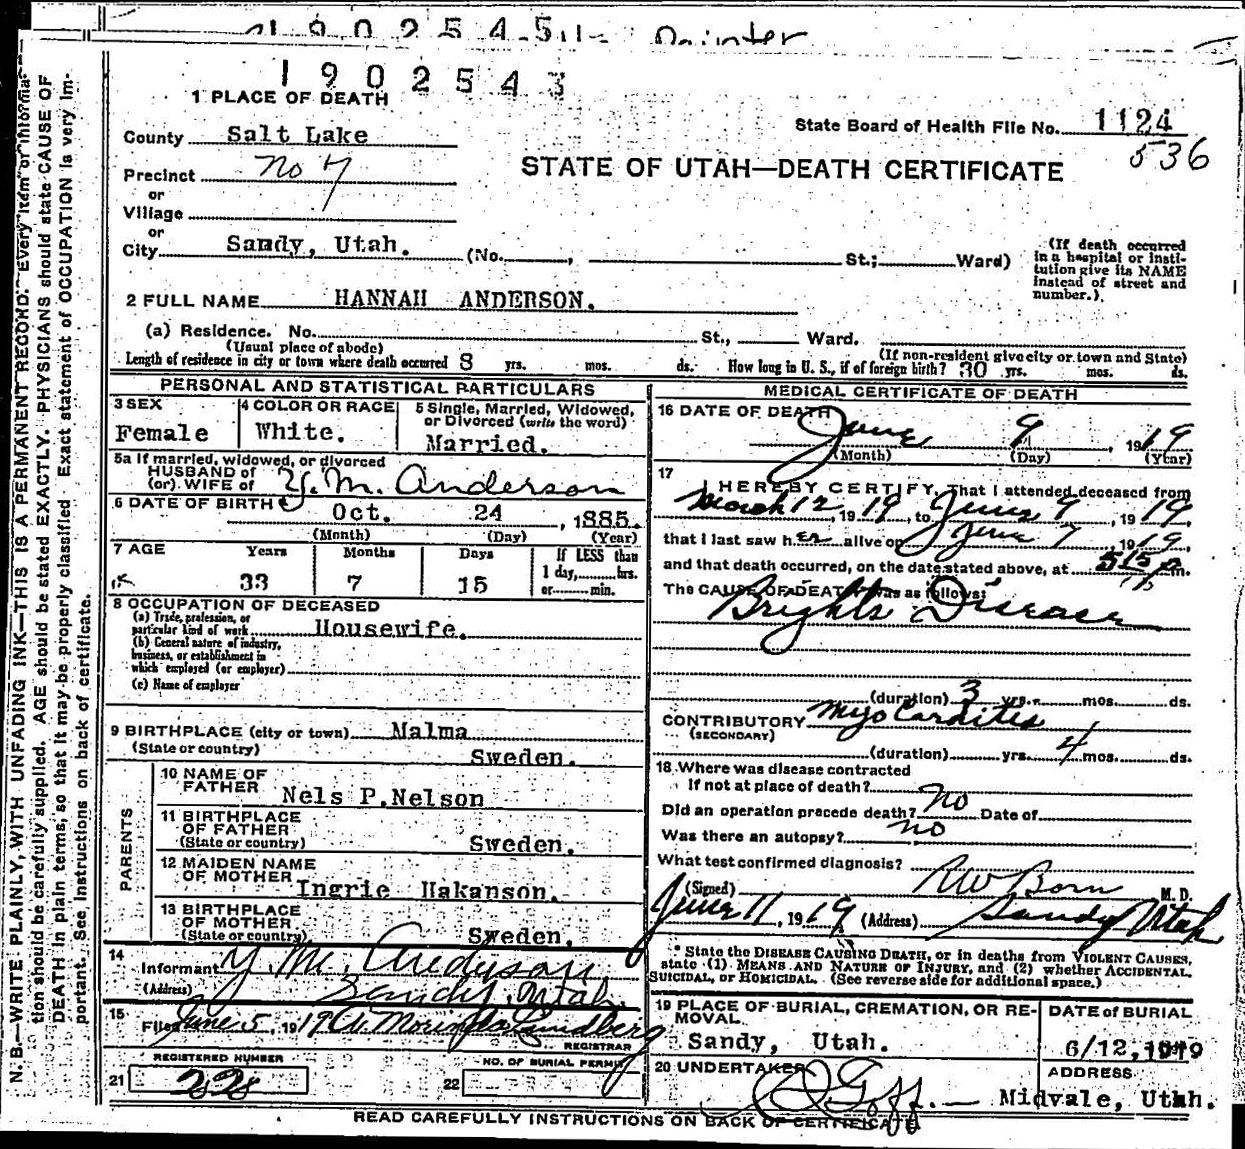 1902543
1 PLACE OF DEATH
County Salt Lake
State Board of Health File No. 1124
536
Precinct No 7
STATE OF UTAH—DEATH CERTIFICATE
or
Village
or
City Sandy, Utah. (No. , St.; Ward)
(If death occurred in a hospital or institution give its NAME instead of street and number.)
2 FULL NAME HANNAH ANDERSON.
(a) Residence. No. St., Ward.
(Usual place of abode) (If non-resident give city or town and State)
Length of residence in city or town where death occurred 8 yrs. mos. ds. How long in U. S., if of foreign birth? 30 yrs. mos. ds.
PERSONAL AND STATISTICAL PARTICULARS
3 SEX Female
4 COLOR OR RACE White.
5 Single, Married, Widowed, or Divorced (write the word) Married.
5a If married, widowed, or divorced
HUSBAND of
(or) WIFE of Y. M. Anderson
6 DATE OF BIRTH Oct. 24, 1885.
(Month) (Day) (Year)
7 AGE Years Months Days If LESS than
33 7 15 1 day, hrs.
or min.
8 OCCUPATION OF DECEASED
(a) Trade, profession, or
particular kind of work Housewife.
(b) General nature of industry,
business, or establishment in
which employed (or employer)
(c) Name of employer
9 BIRTHPLACE (city or town) Malma
(State or country) Sweden.
PARENTS
10 NAME OF
FATHER Nels P.Nelson
11 BIRTHPLACE
OF FATHER
(State or country) Sweden.
12 MAIDEN NAME
OF MOTHER Ingrie Hakanson.
13 BIRTHPLACE
OF MOTHER
(State or country) Sweden.
14
Informant Y. M. Anderson.
(Address) Sandy, Utah.
15
Filed June 5, 1919 Lundberg
REGISTRAR
REGISTERED NUMBER
NO. OF BURIAL PERMIT
21 228
22
MEDICAL CERTIFICATE OF DEATH
16 DATE OF DEATH
June 9, 1919
(Month) (Day) (Year)
17
I HEREBY CERTIFY, That I attended deceased from
March 12, 1919, to June 9, 1919.
that I last saw her alive on June 7, 1919,
and that death occurred, on the date stated above, at 515 P. m.
The CAUSE OF DEATH was as follows:
Brights Disease
(duration) 3 yrs. mos. ds.
CONTRIBUTORY Myo Carditis
(SECONDARY)
(duration) yrs. 4 mos. ds.
18 Where was disease contracted
If not at place of death?
Did an operation precede death? No Date of
Was there an autopsy? no
What test confirmed diagnosis?
(Signed) Born M. D.
June 11, 1919 (Address) Sandy Utah
* State the DISEASE CAUSING DEATH, or in deaths from VIOLENT CAUSES,
state (1) MEANS AND NATURE OF INJURY, and (2) whether ACCIDENTAL,
SUICIDAL, OF HOMICIDAL. (See reverse side for additional space.)
19 PLACE OF BURIAL, CREMATION, OR REMOVAL.
DATE of BURIAL
Sandy, Utah.
6/12, 1919
20 UNDERTAKER
ADDRESS
Goff. Midvale, Utah.
READ CAREFULLY INSTRUCTIONS ON BACK OF CERTIFICATE
N. B.—WRITE PLAINLY, WITH UNFADING INK—THIS IS A PERMANENT RECORD. Every item of information should be carefully supplied. AGE should be stated EXACTLY. PHYSICIANS should state CAUSE OF DEATH in plain terms, so that it may be properly classified. Exact statement of OCCUPATION is very important. See instructions on back of certificate.